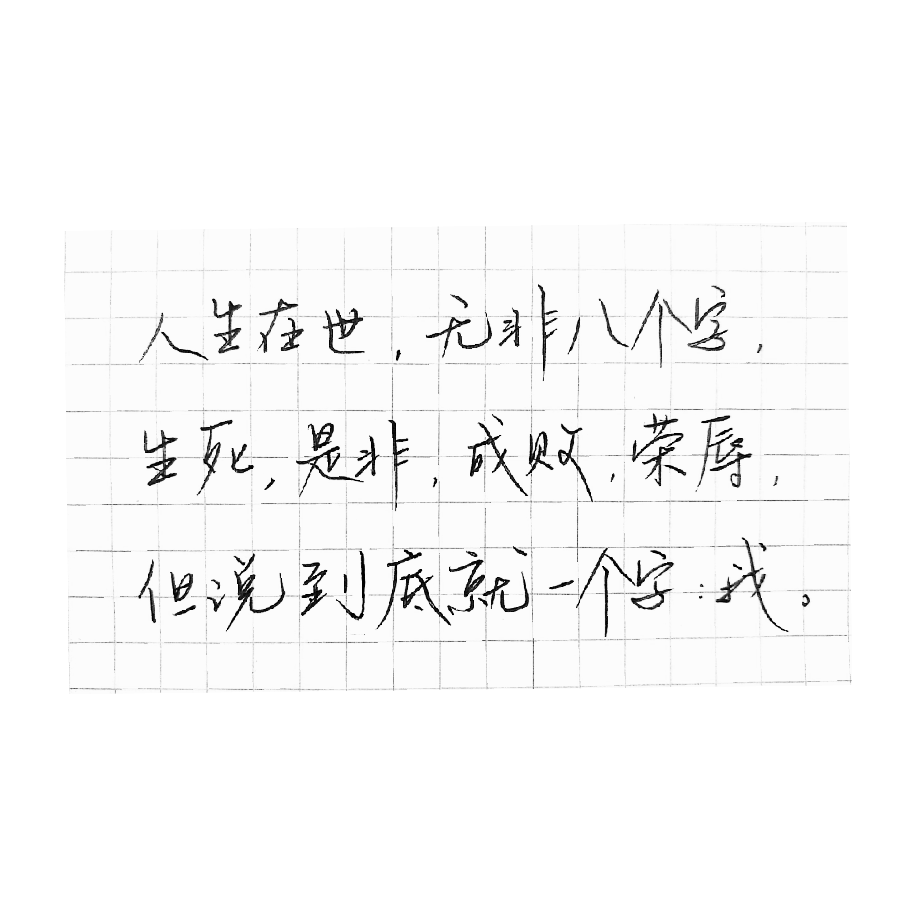 人生在世，无非八个字，
生死，是非，成败，荣辱，
但说到底就一个字：我。